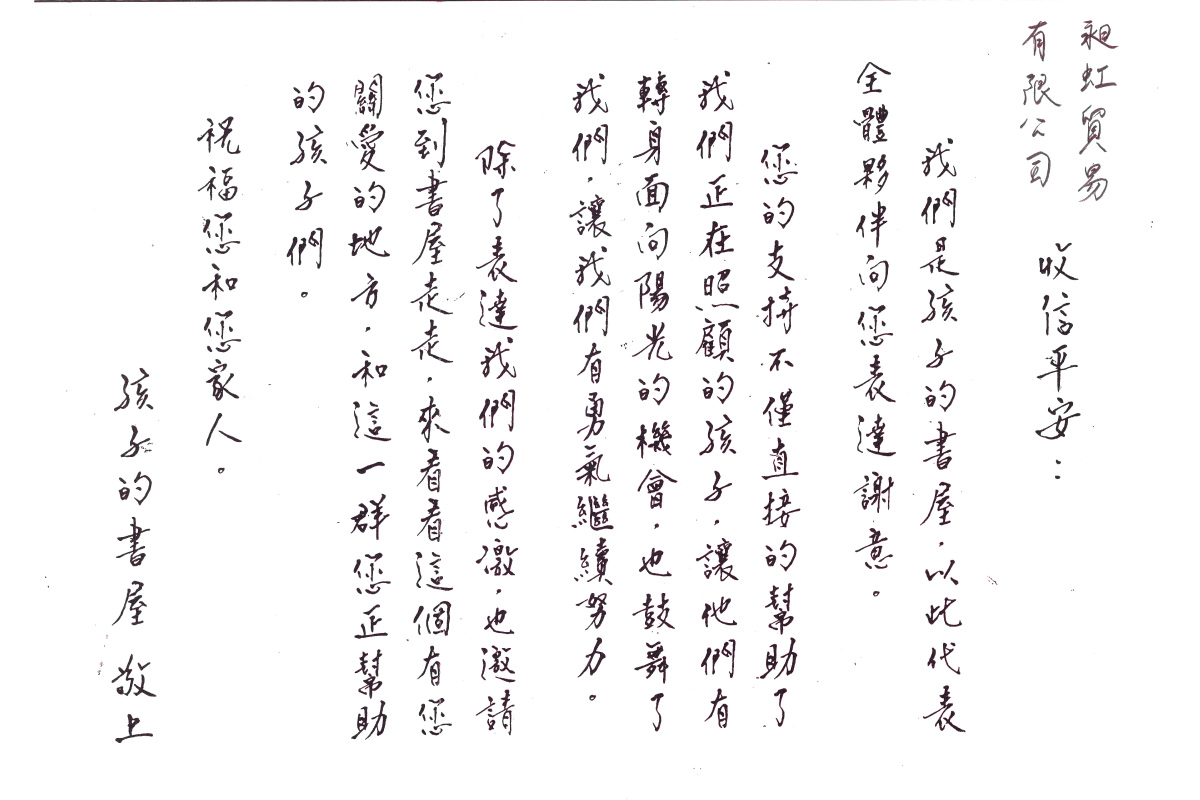 昶虹貿易
有限公司
收信平安：
我們是孩子的書屋，以此代表
全體夥伴向您表達謝意。
您的支持不僅直接的幫助了
我們正在照顧的孩子，讓他們有
轉身面向陽光的機會，也鼓舞了
我們，讓我們有勇氣繼續努力。
除了表達我們的感激，也邀請
您到書屋走走，來看看這個有您
關愛的地方，和這一群您正幫助
的孩子們。
祝福您和您家人。
孩子的書屋 敬上